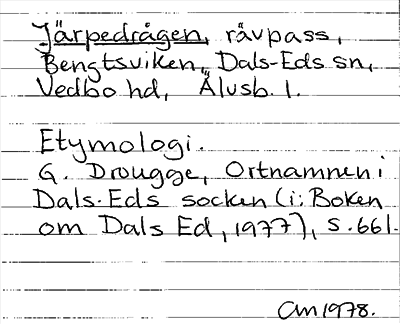 Järpedrågen, rävpass,
Bengtsviken, Dals-Eds sn,
Vedbo hd, Älvsb. l.
Etymologi.
G. Drougge, Ortnamnen i
Dals-Eds socken (i: Boken
om Dals Ed, 1977), s. 661.
CM 1978.